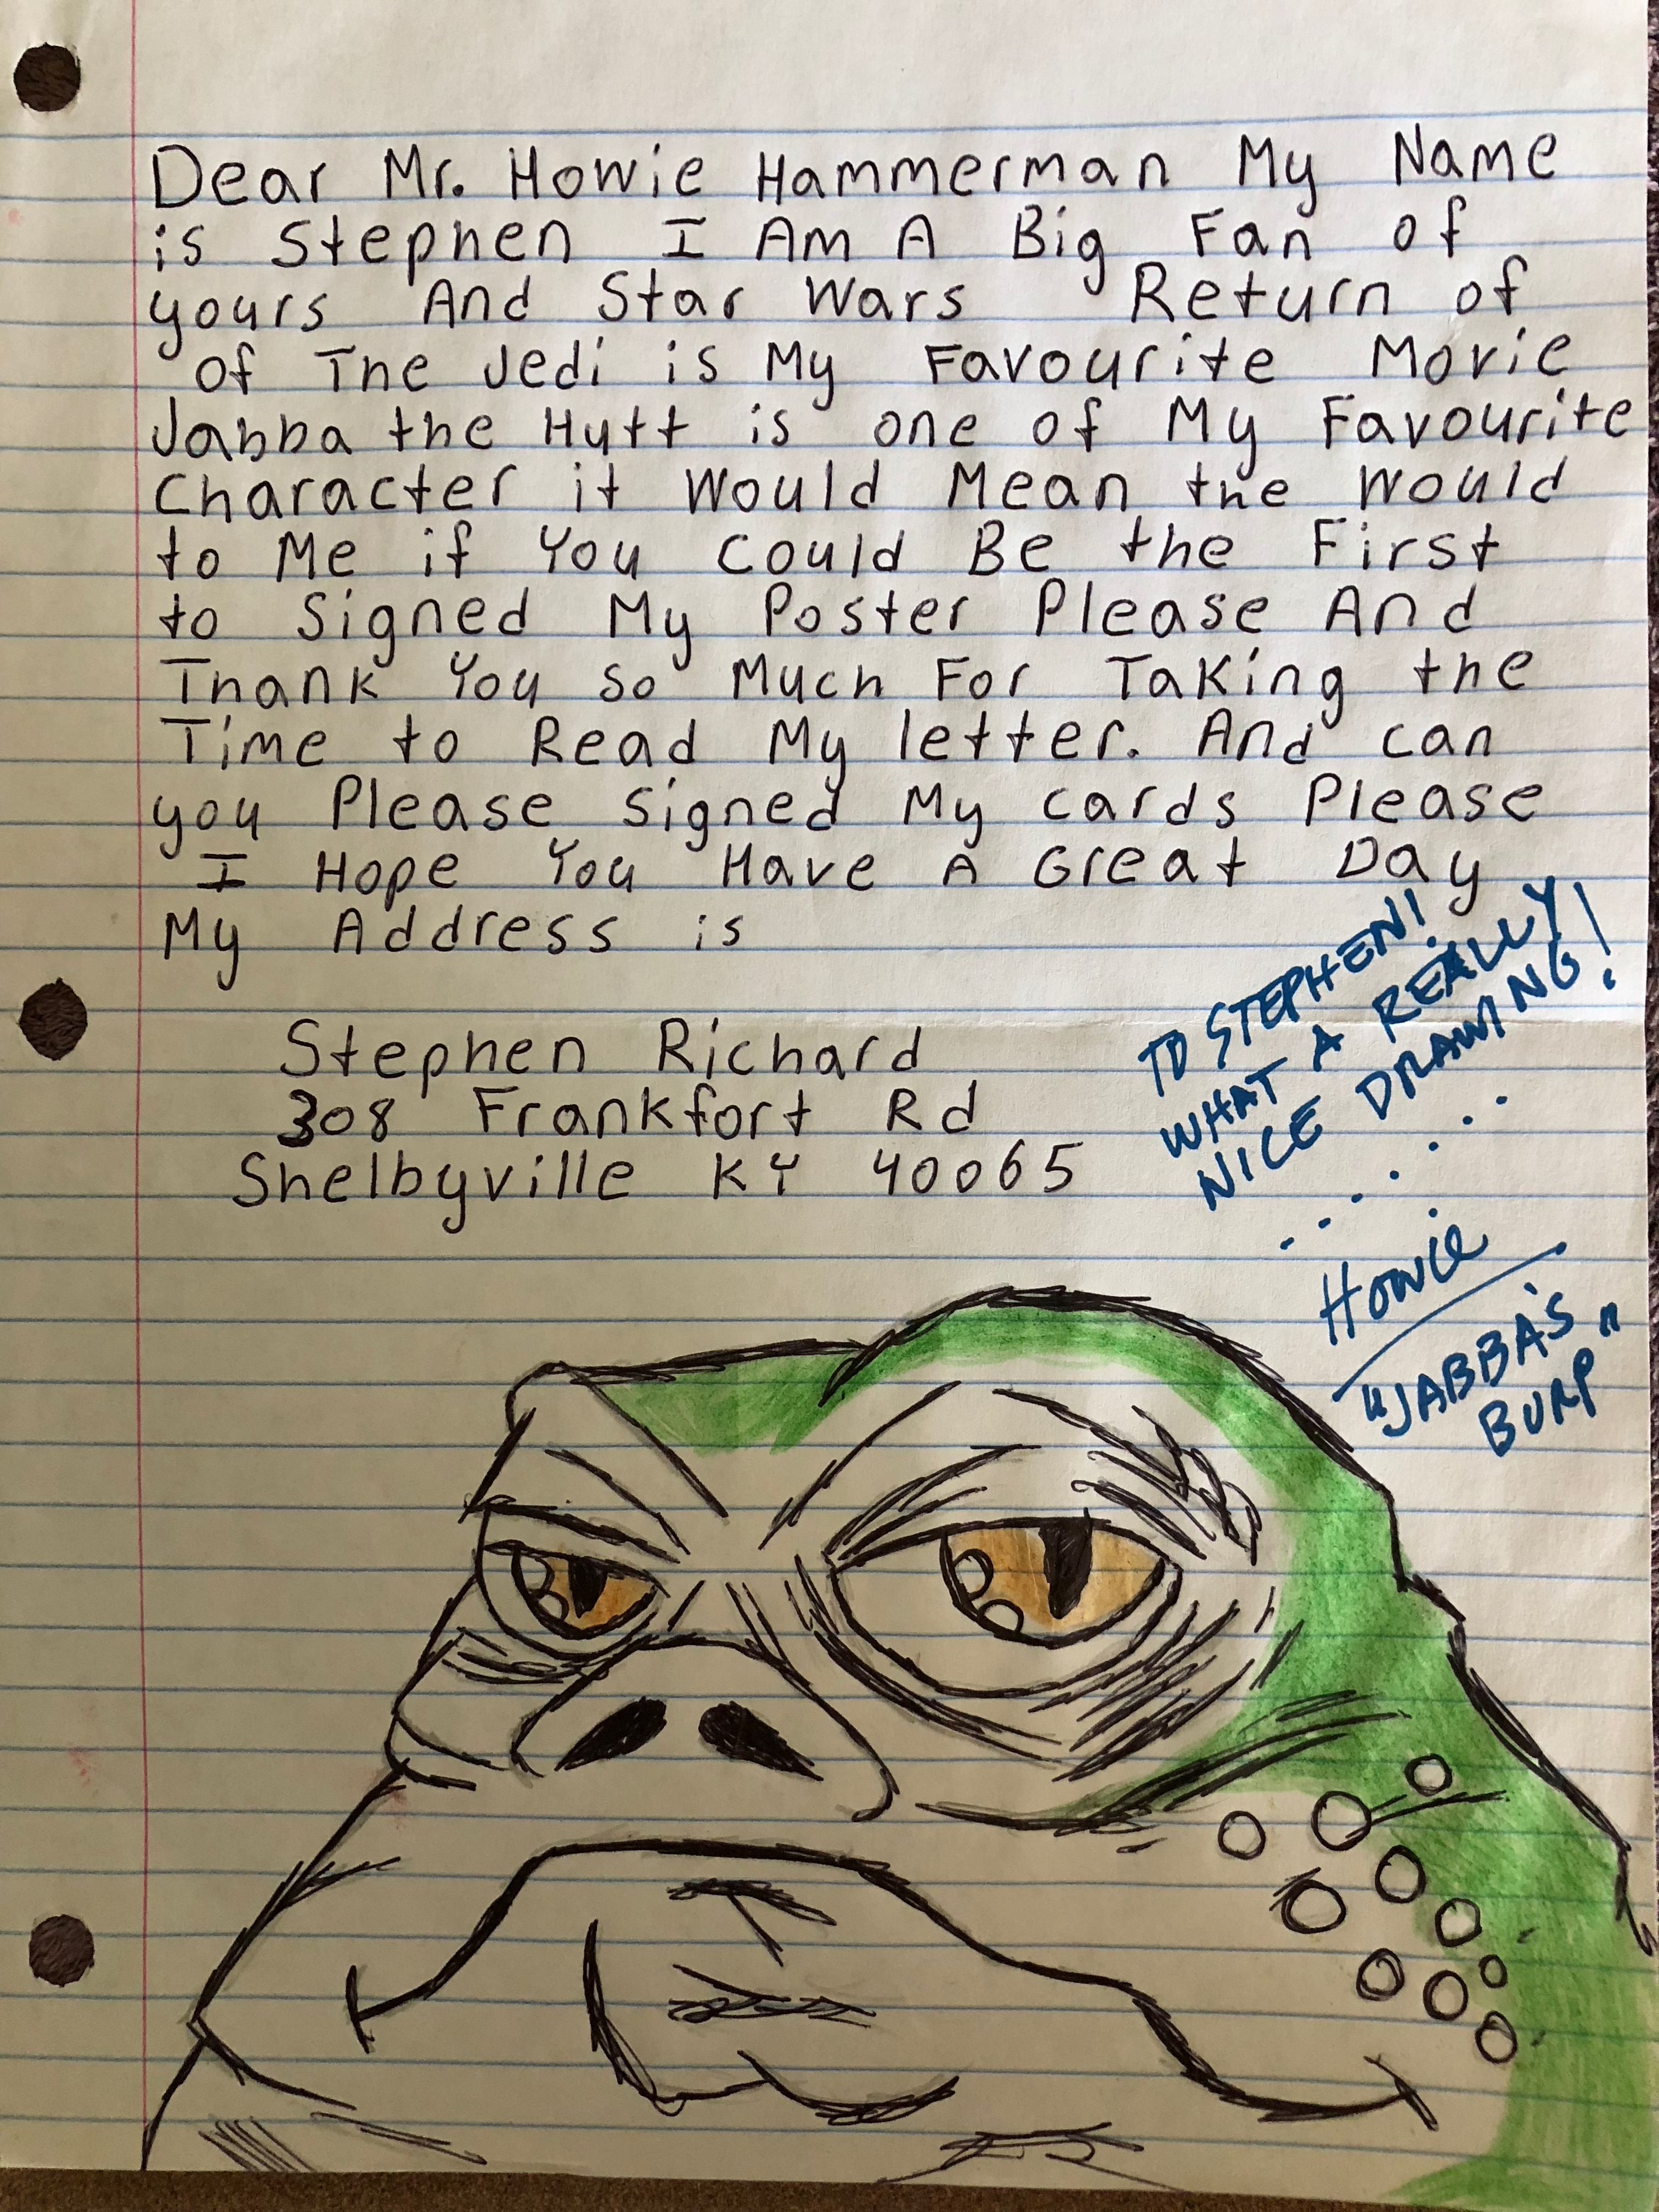 Dear Mr. Howie Hammerman My Name
is Stephen I Am A Big Fan of
yours And Star Wars Return of
of The Jedi is My Favourite Movie
Jabba the Hutt is one of My Favourite
Character it Would Mean the Would
to Me if You Could Be the First
to Signed My Poster Please And
Thank You So Much For Taking the
Time to Read My letter. And can
you Please Signed My Cards Please
I Hope You Have A Great Day
My Address is
Stephen Richard
308 Frankfort Rd
Shelbyville KY 40065
TO STEPHEN!
WHAT A REALLY
NICE DRAWING!
Howie
"JABBA'S
BURP"